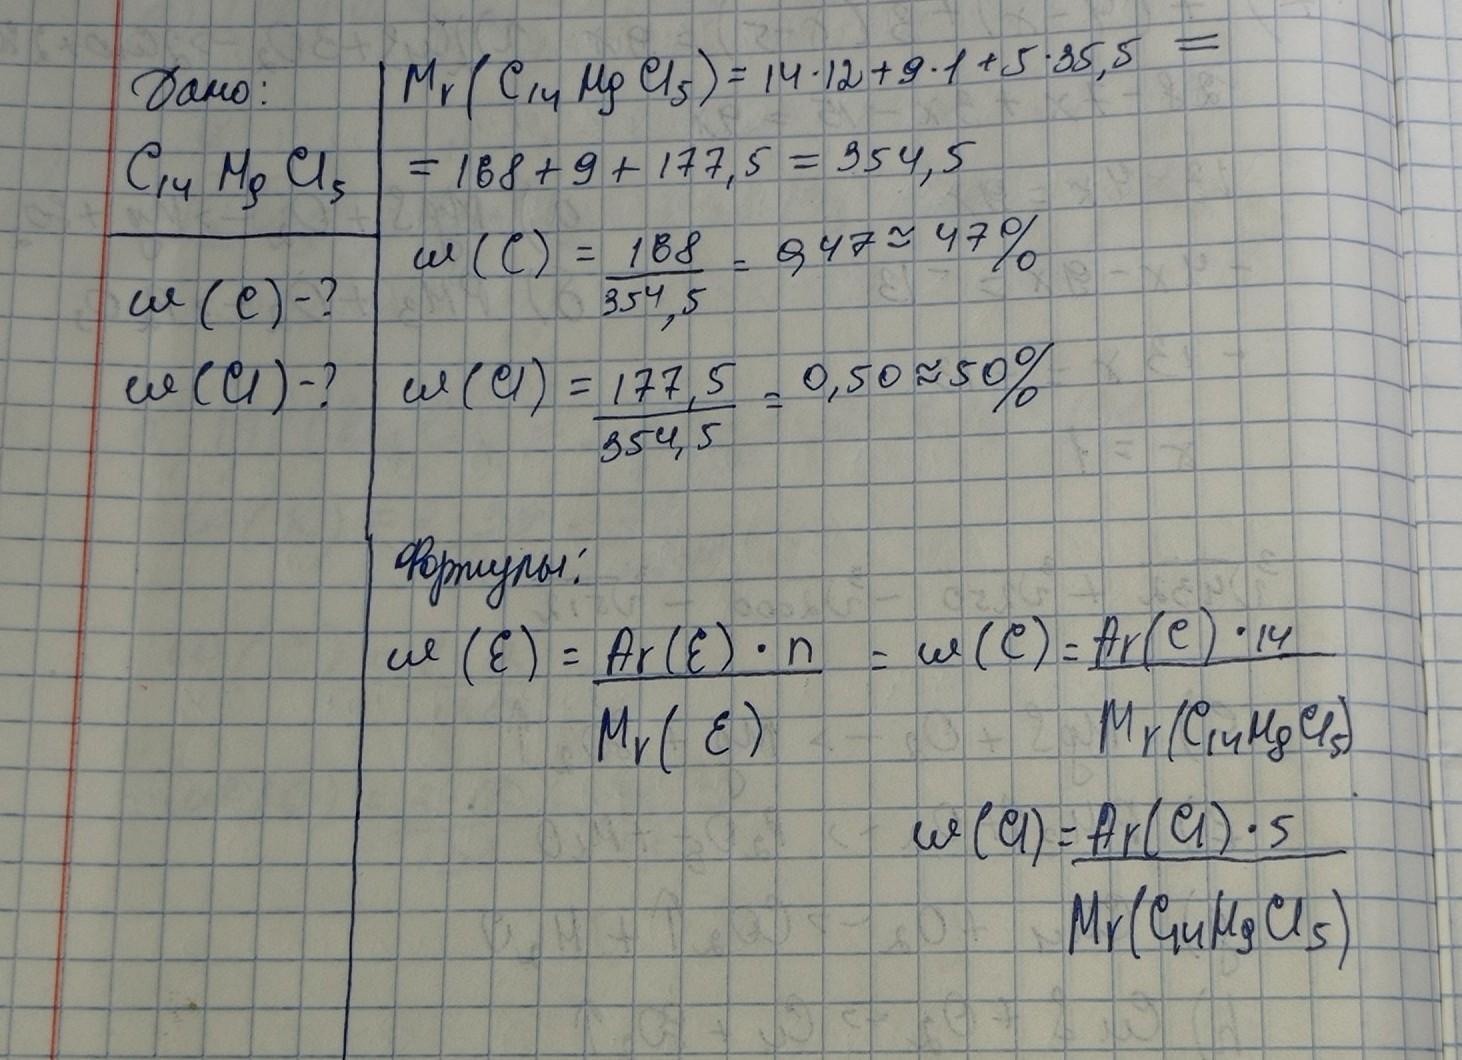 Дано:
C₁₄H₉Cl₅
w(C)-?
w(Cl)-?
Mr(C₁₄H₉Cl₅)=14·12+9·1+5·35,5=
=168+9+177,5=354,5
w(C)=168/354,5=0,47≈47%
w(Cl)=177,5/354,5=0,50≈50%
Формулы:
w(Ɛ)=Ar(Ɛ)·n/Mr(Ɛ)=w(C)=Ar(C)·14/Mr(C₁₄H₉Cl₅)
w(Cl)=Ar(Cl)·5/Mr(C₁₄H₉Cl₅)